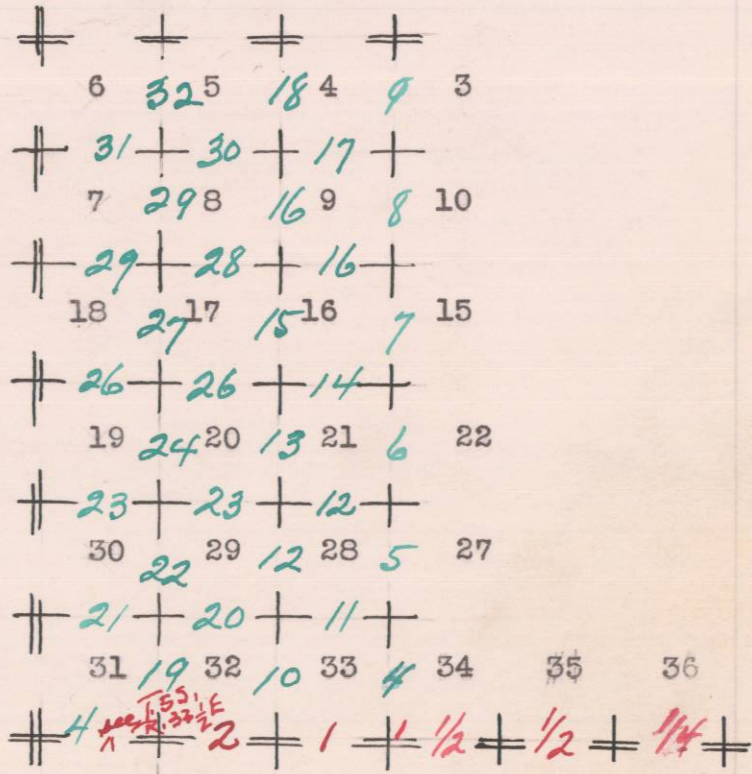 6 32 5 18 4 9 3
31 30 17
7 29 8 16 9 8 10
29 28 16
18 27 17 15 16 7 15
26 26 14
19 24 20 13 21 6 22
23 23 12
30 22 29 12 28 5 27
21 20 11
31 19 32 10 33 4 34 35 36
T.5S.
4 see R.33½E 2 1 1 1/2 1/2 1/4